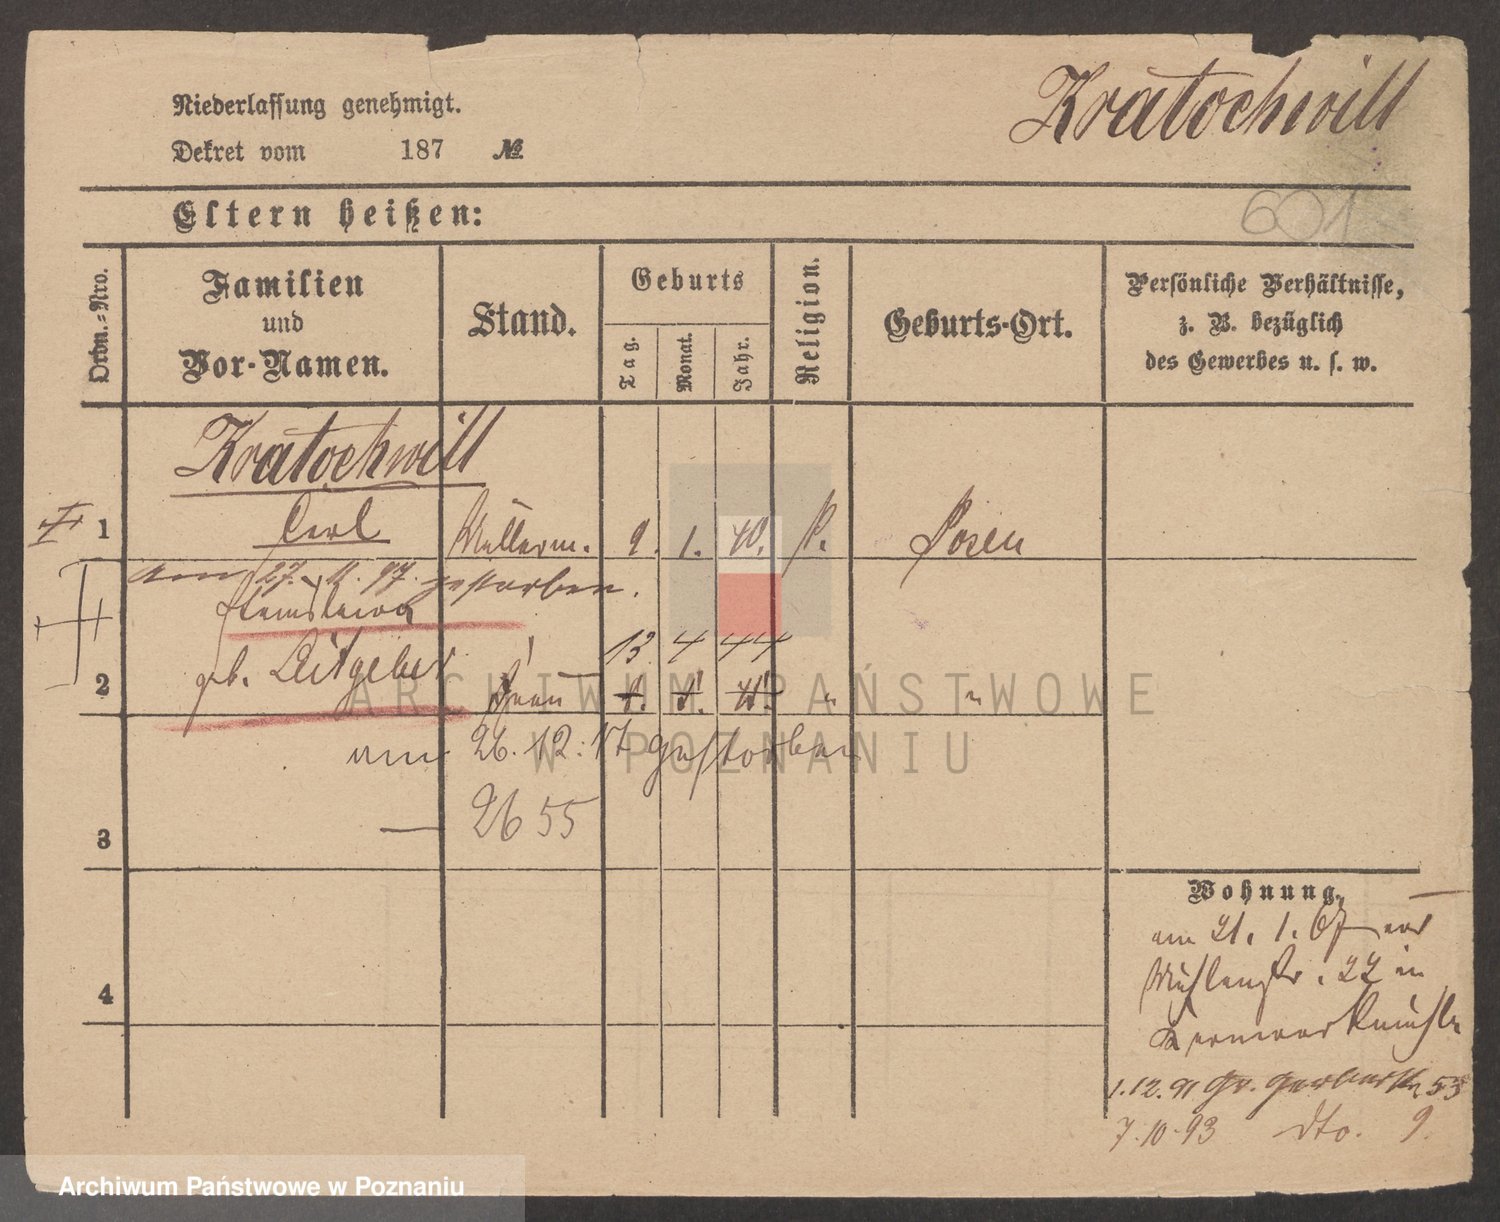 Kratochwill
Niederlassung genehmigt.
Dekret vom 187 №
601
Eltern heißen:
Ordn.-Nro.
Familien
und
Vor-Namen.
Stand.
Geburts
Tag.
Monat.
Jahr.
Religion.
Geburts-Ort.
Persönliche Verhältnisse,
z. B. bezüglich
des Gewerbes u. s. w.
Kratochwill
1 Carl Müllerm. 9. 1. 40. Posen
am 27. 97. gestorben.
13 4 44
2 geb. Leitgeber Frau " "
am 26.12.17 gestorben
3 — 2655
4
Wohnung.
am 21. 1. 67 von
Mühlenstr. 22 in
1.12.91 Gr. Gerberstr. 53
7.10.93 dto. 9.
ARCHIWUM PAŃSTWOWE
W POZNANIU
Archiwum Państwowe w Poznaniu